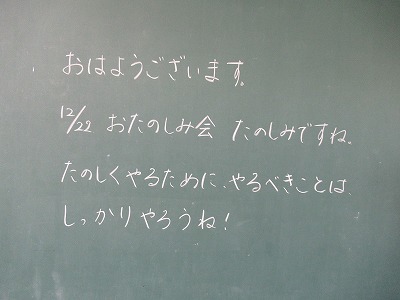 おはようございます。
12/22 おたのしみ会 たのしみですね。
たのしくやるために、やるべきことは、
しっかりやろうね!